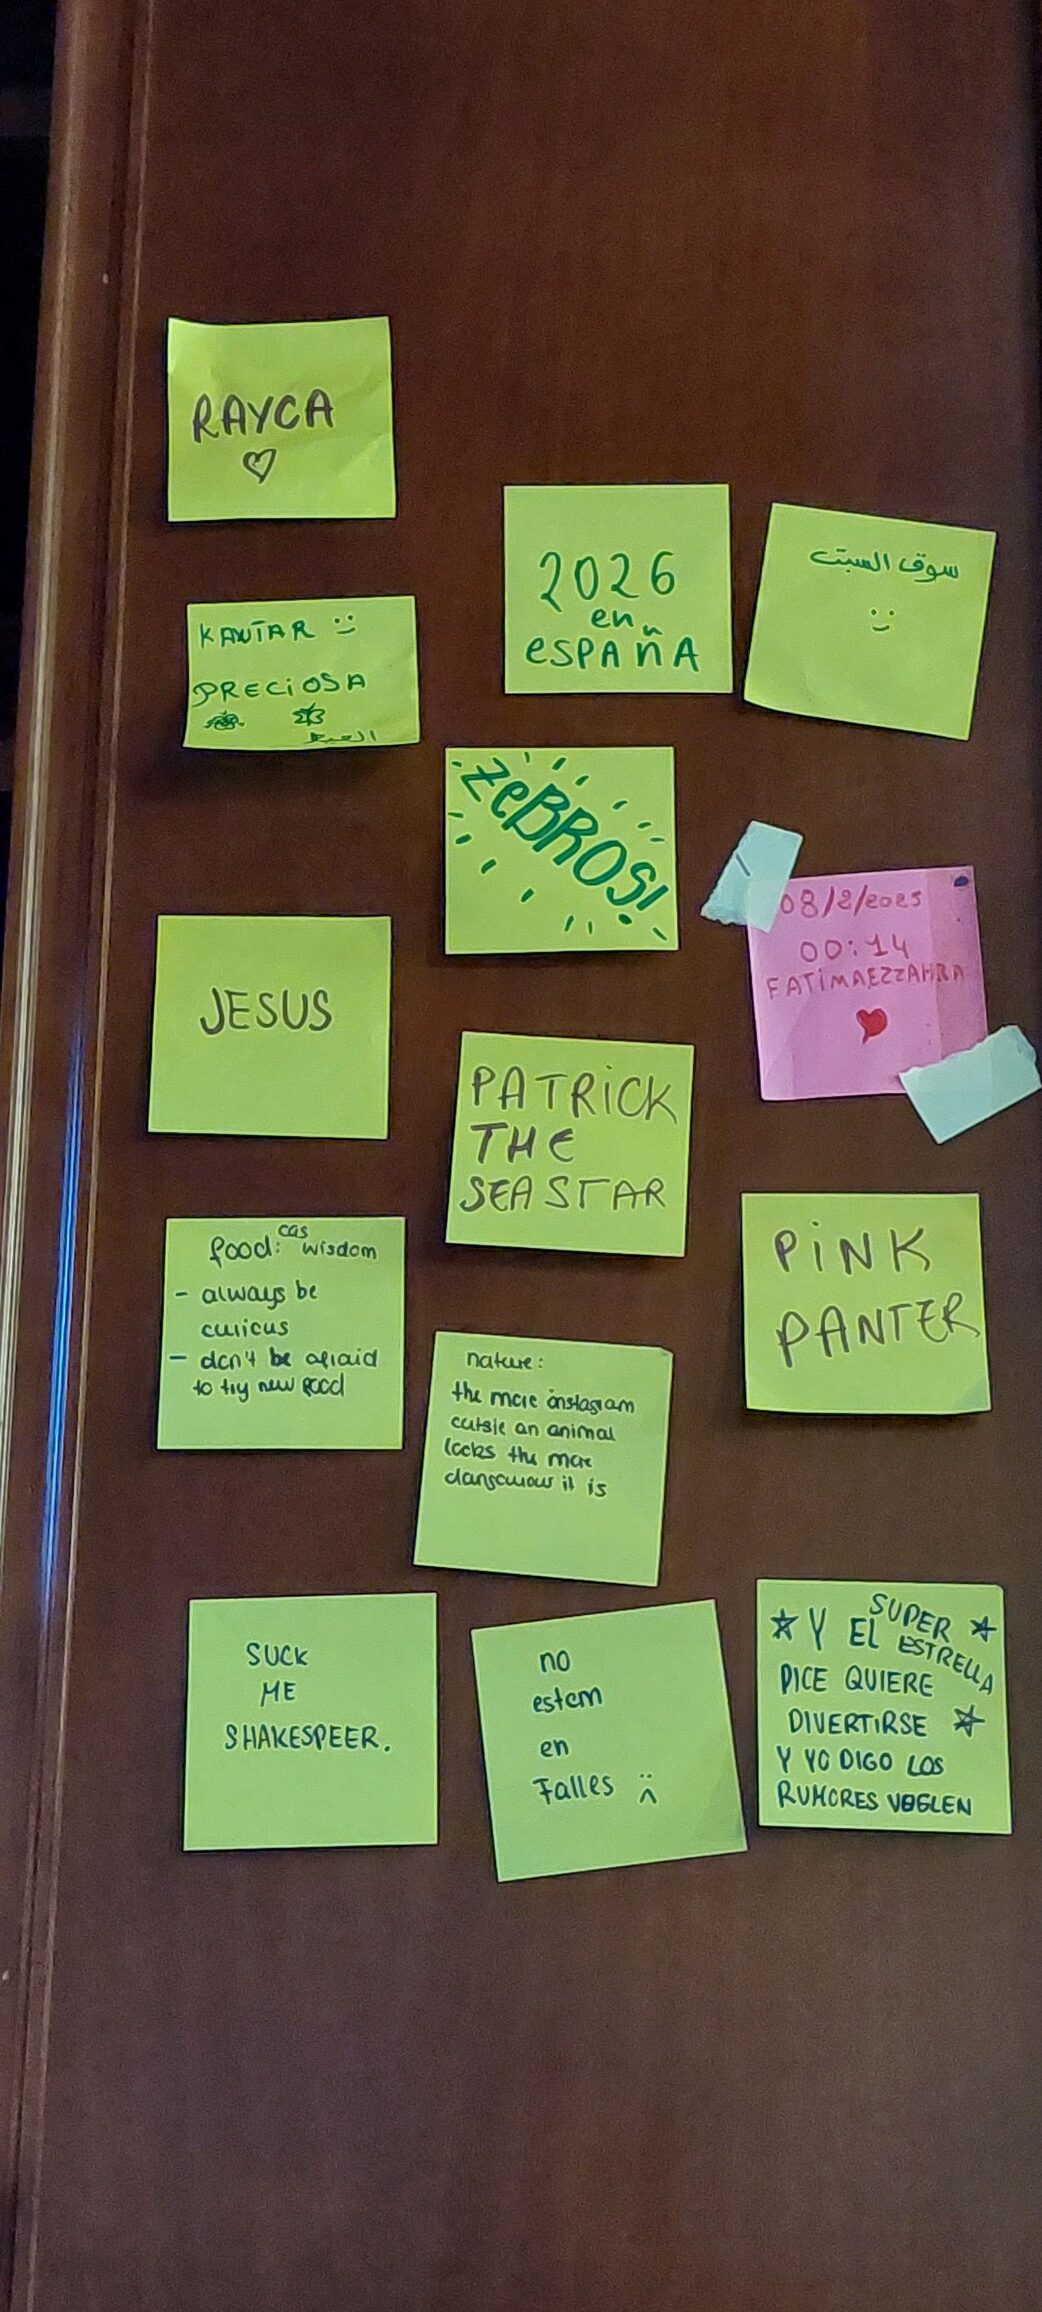 RAYCA
2026
en
ESPAÑA
سوق السبت
KAWTAR
PRECiOSA
zeBROS!
08/2/2025
00:14
FATiMAEZZAHRA
JESUS
PATRiCK
THE
SEASTAR
PiNK
PANTER
food: cas wisdom
- always be
curious
- don't be afraid
to try new food
nature:
the more instagram
cutsie an animal
looks the more
dangerous it is
SUCK
ME
SHAKESPEER.
no
estem
en
Falles
Y EL SUPER ESTRELLA
DICE QUIERE
DIVERTIRSE
Y YO DIGO LOS
RUMORES VUELEN